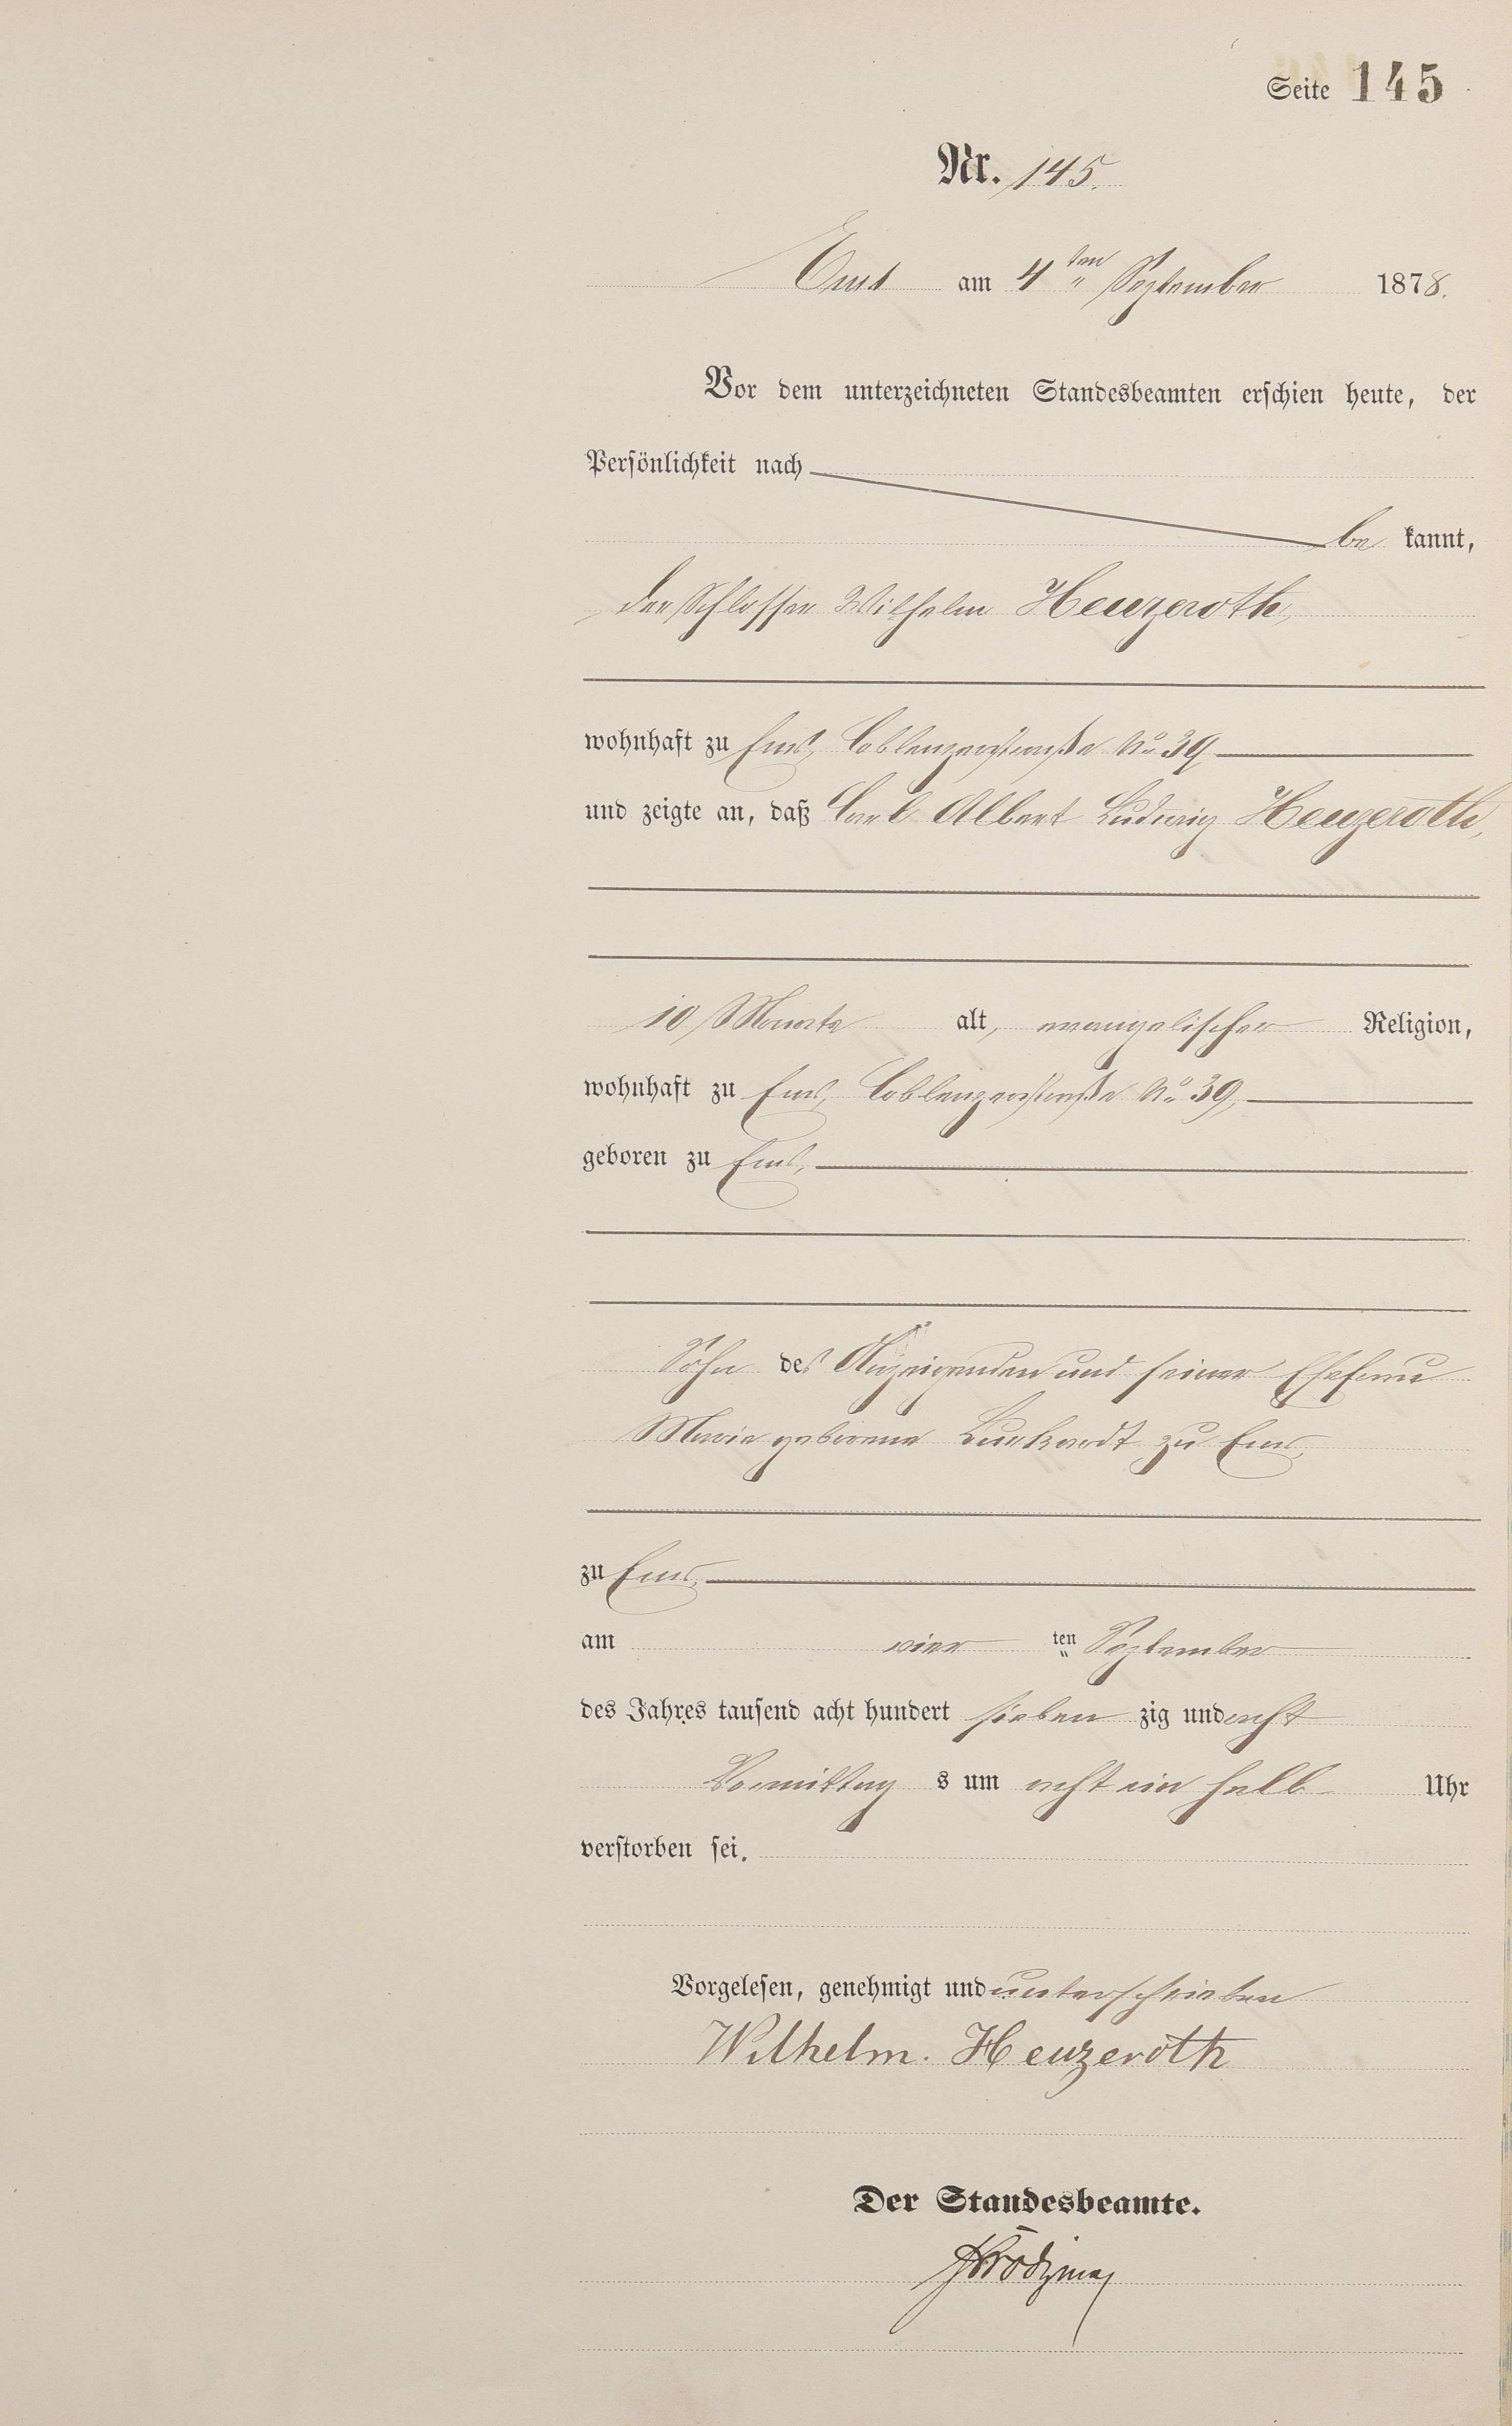 Seite 145
Nr. 145.
Ems am 4ten September 1878.
Vor dem unterzeichneten Standesbeamten erschien heute, der
Persönlichkeit nach
be kannt,
der Schlosser Wilhelm Heuzeroth,
wohnhaft zu Ems, Coblenzerstraße No 39
und zeigte an, daß Carl Albert Ludwig Heuzeroth,
10 Monate alt, evangelischer Religion,
wohnhaft zu Ems, Coblenzerstraße No 39,
geboren zu Ems,
Sohn des Anzeigenden und seiner Ehefrau
Marie geborene Burkardt zu Ems,
zu Ems,
am vier ten September
des Jahres tausend acht hundert sieben zig und acht
Vormittag s um acht ein halb Uhr
verstorben sei.
Vorgelesen, genehmigt und unterschrieben
Wilhelm. Heuzeroth
Der Standesbeamte.